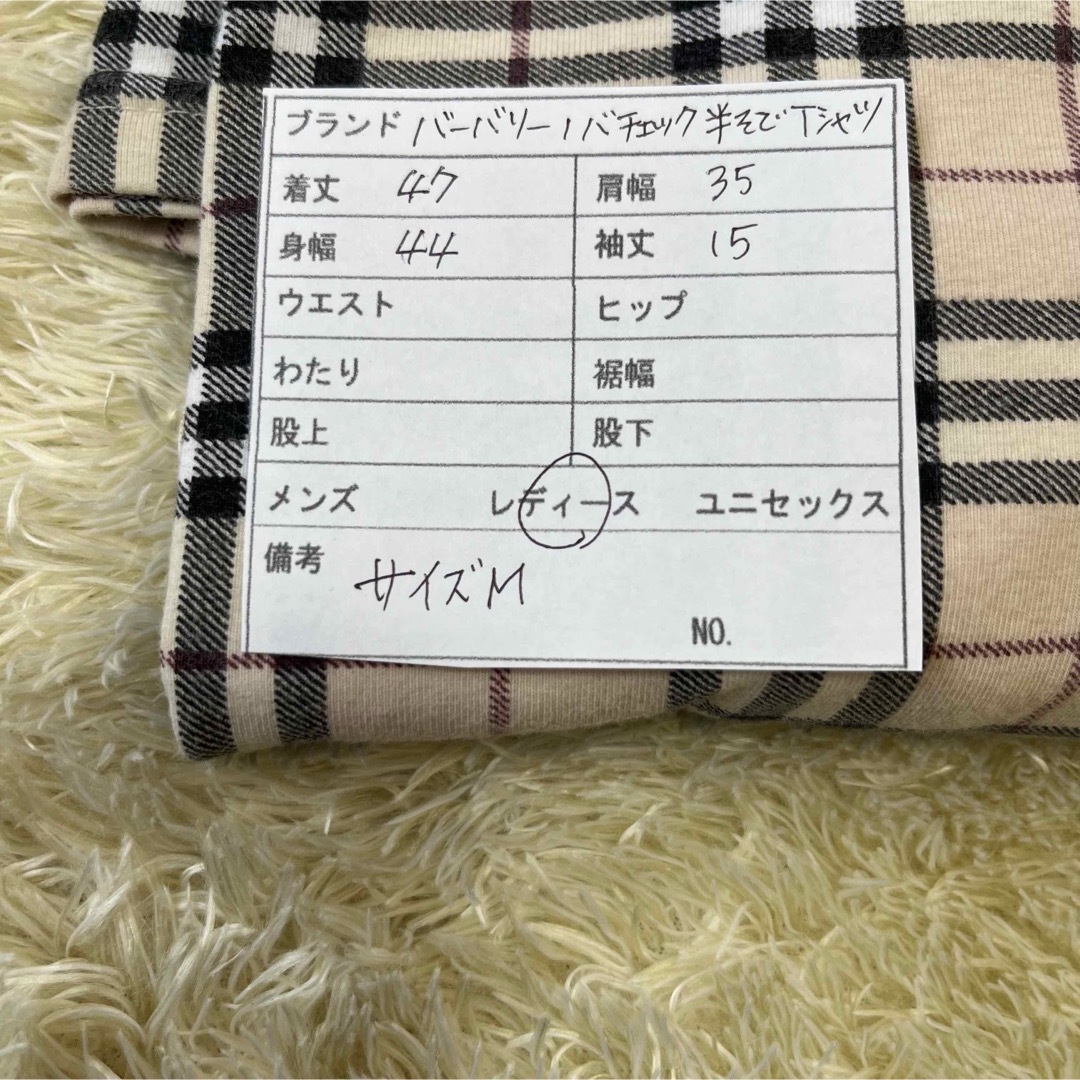 ブランド バーバリー ノバチェック 半そでTシャツ
着丈 47 肩幅 35
身幅 44 袖丈 15
ウエスト ヒップ
わたり 裾幅
股上 股下
メンズ レディース ユニセックス
備考 サイズM
NO.